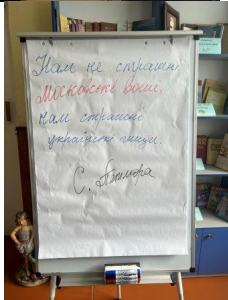 Нам не страшні
Московські воші,
нам страшні
українські гниди.
С. Петлюра